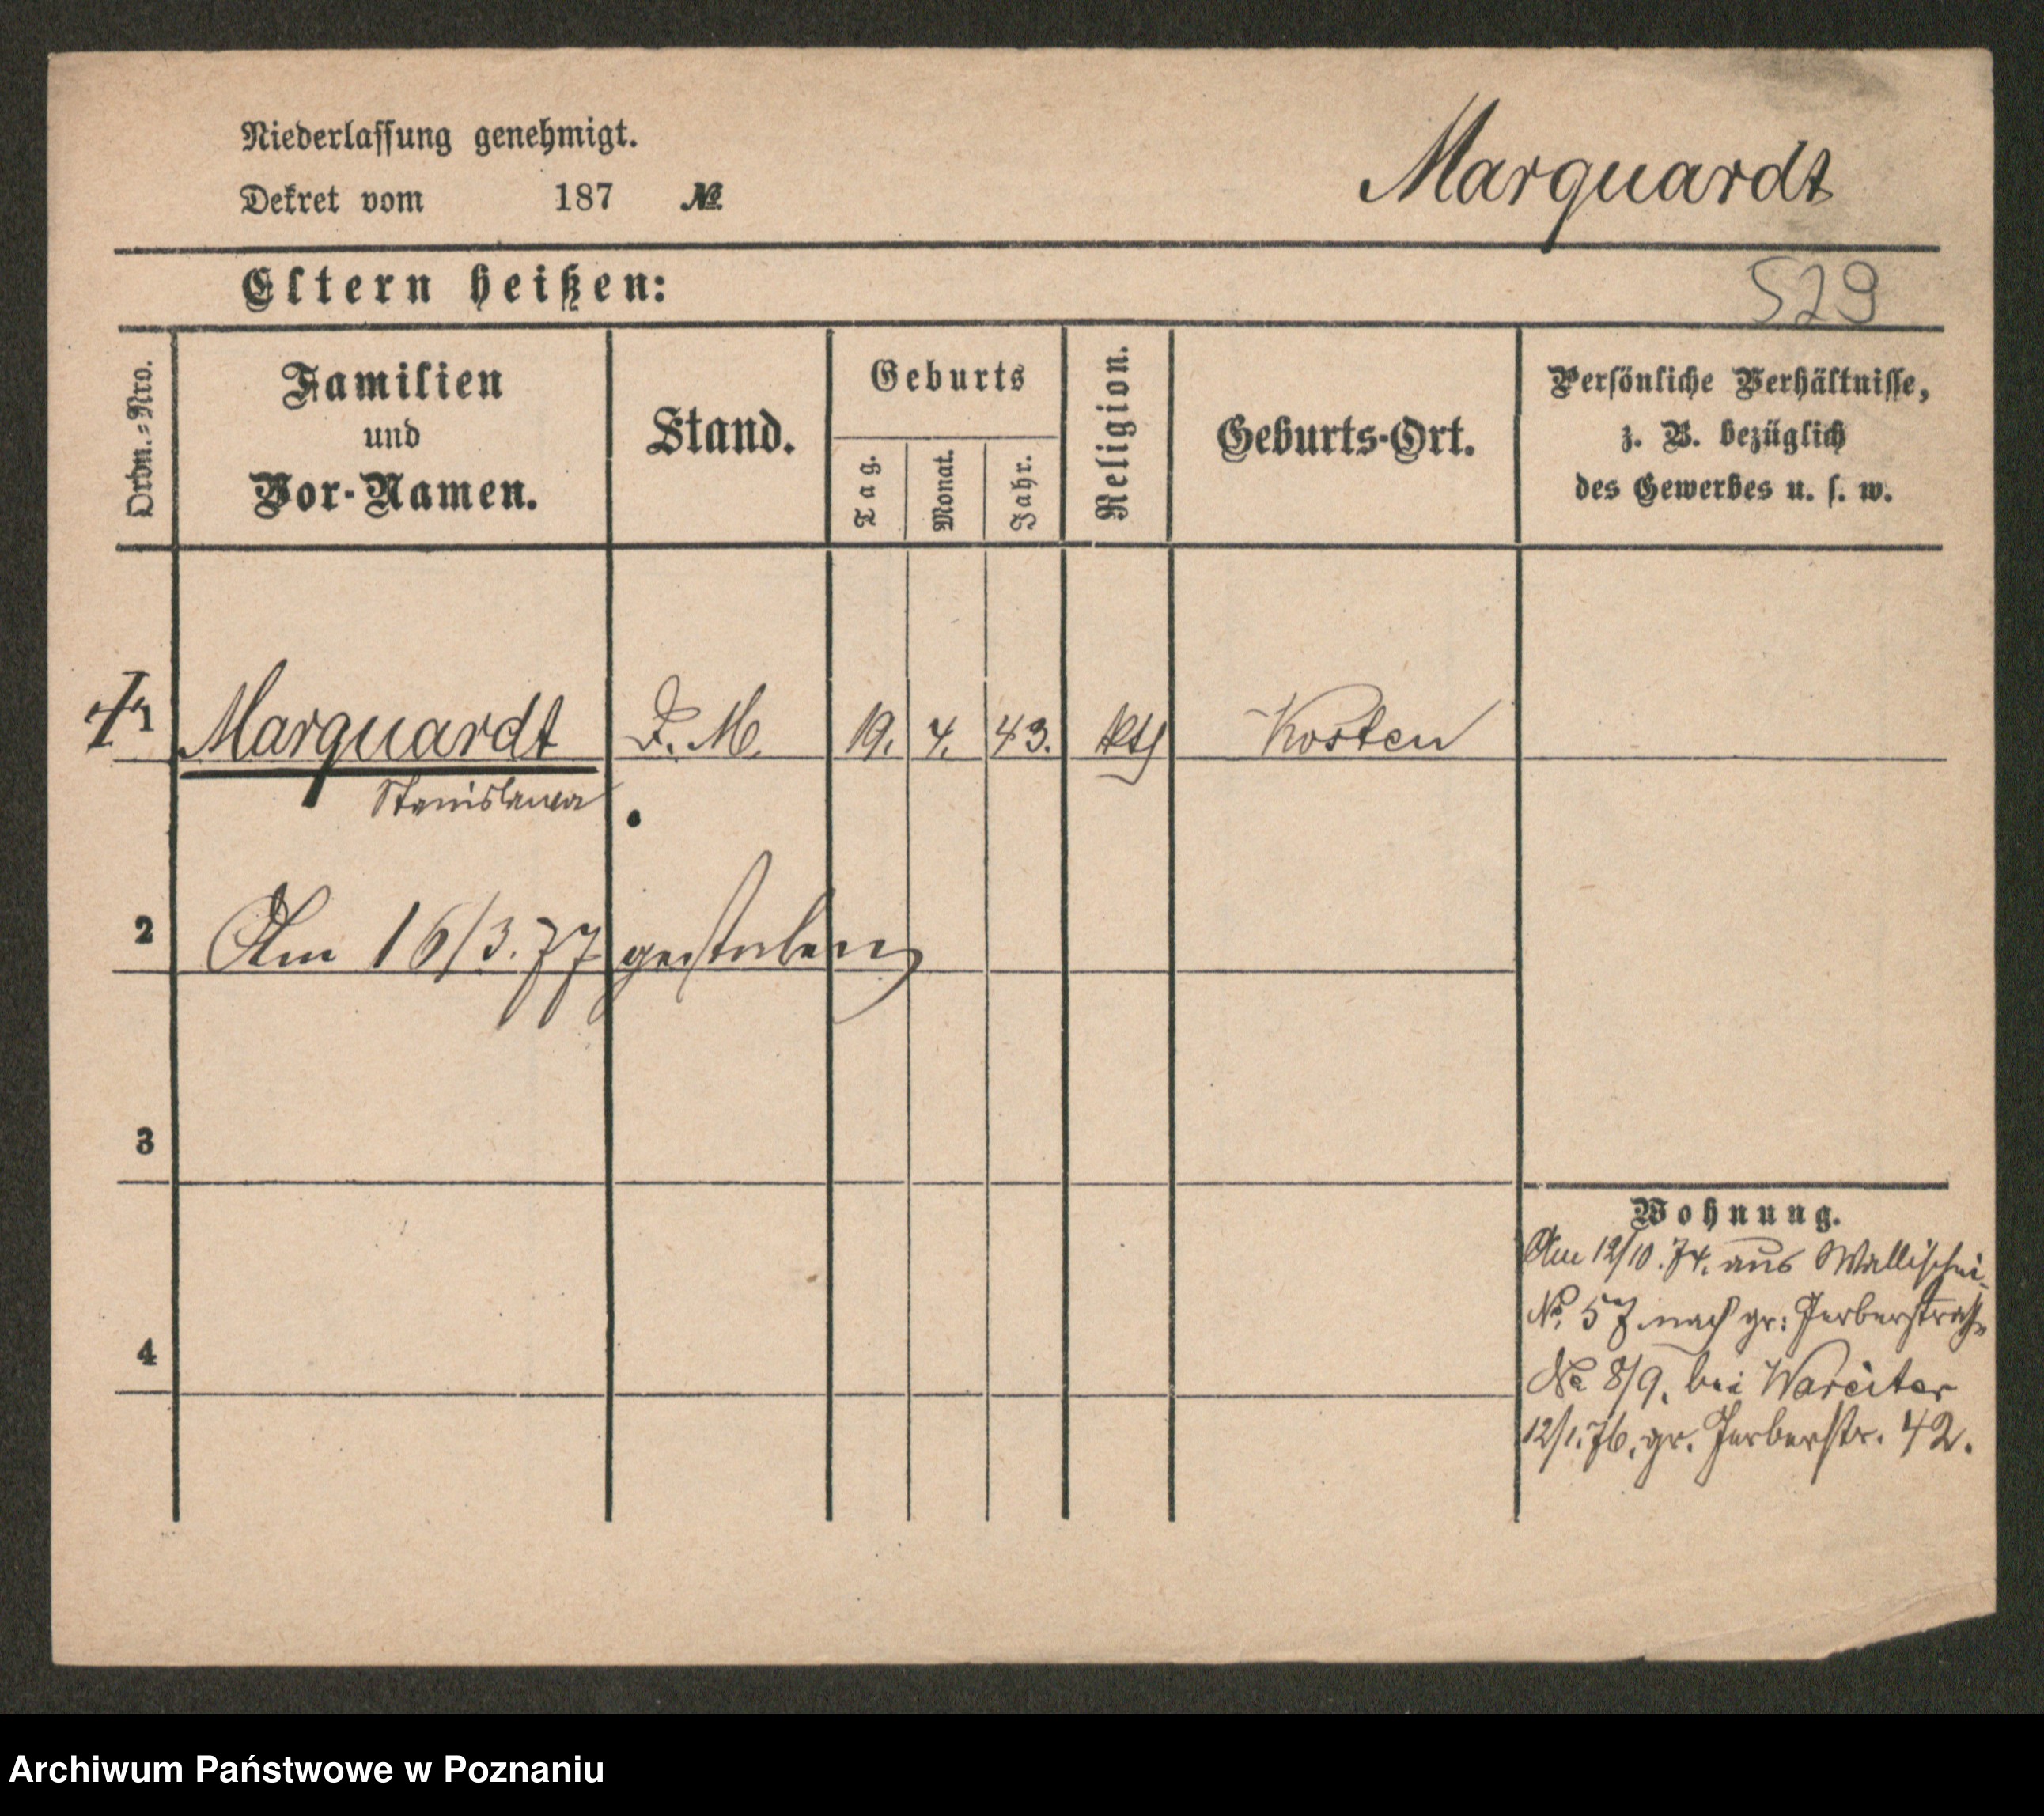 Niederlassung genehmigt.
Dekret vom 187 №
Marquardt
Eltern heißen:
529
Ordn.-Nro.
Familien
und
Vor-Namen.
Stand.
Geburts
Tag.
Monat.
Jahr.
Religion.
Geburts-Ort.
Persönliche Verhältnisse,
z. B. bezüglich
des Gewerbes u. s. w.
Marquardt D. M. 19. 4. 43. kth Kosten
Stanislawa
2 Am 16/3. 77 gestorben
3
Wohnung.
Am 12/10. 74. aus Wallischei
№ 57 nach gr: Gerberstraße
4
№ 8/9. bei Wareiter
12/1. 76. gr. Gerberstr. 42.
Archiwum Państwowe w Poznaniu